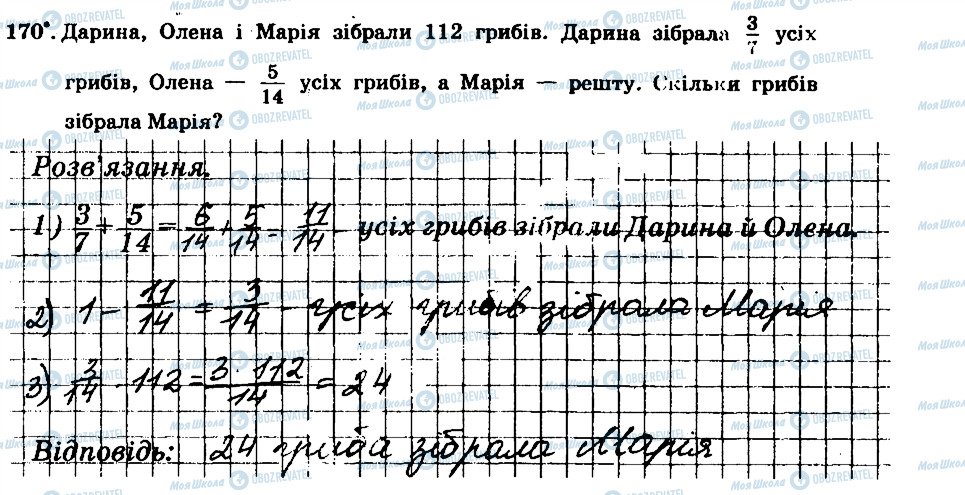 170°. Дарина, Олена і Марія зібрали 112 грибів. Дарина зібрала 3/7 усіх
грибів, Олена — 5/14 усіх грибів, а Марія — решту. Скільки грибів
зібрала Марія?
Розв'язання.
1) 3/7 + 5/14 = 6/14 + 5/14 = 11/14 – усіх грибів зібрали Дарина й Олена.
2) 1 – 11/14 = 3/14 – усіх грибів зібрала Марія
3) 3/14 · 112 = 3 · 112/14 = 24
Відповідь: 24 гриба зібрала Марія
МояШкола OBOZREVATEL